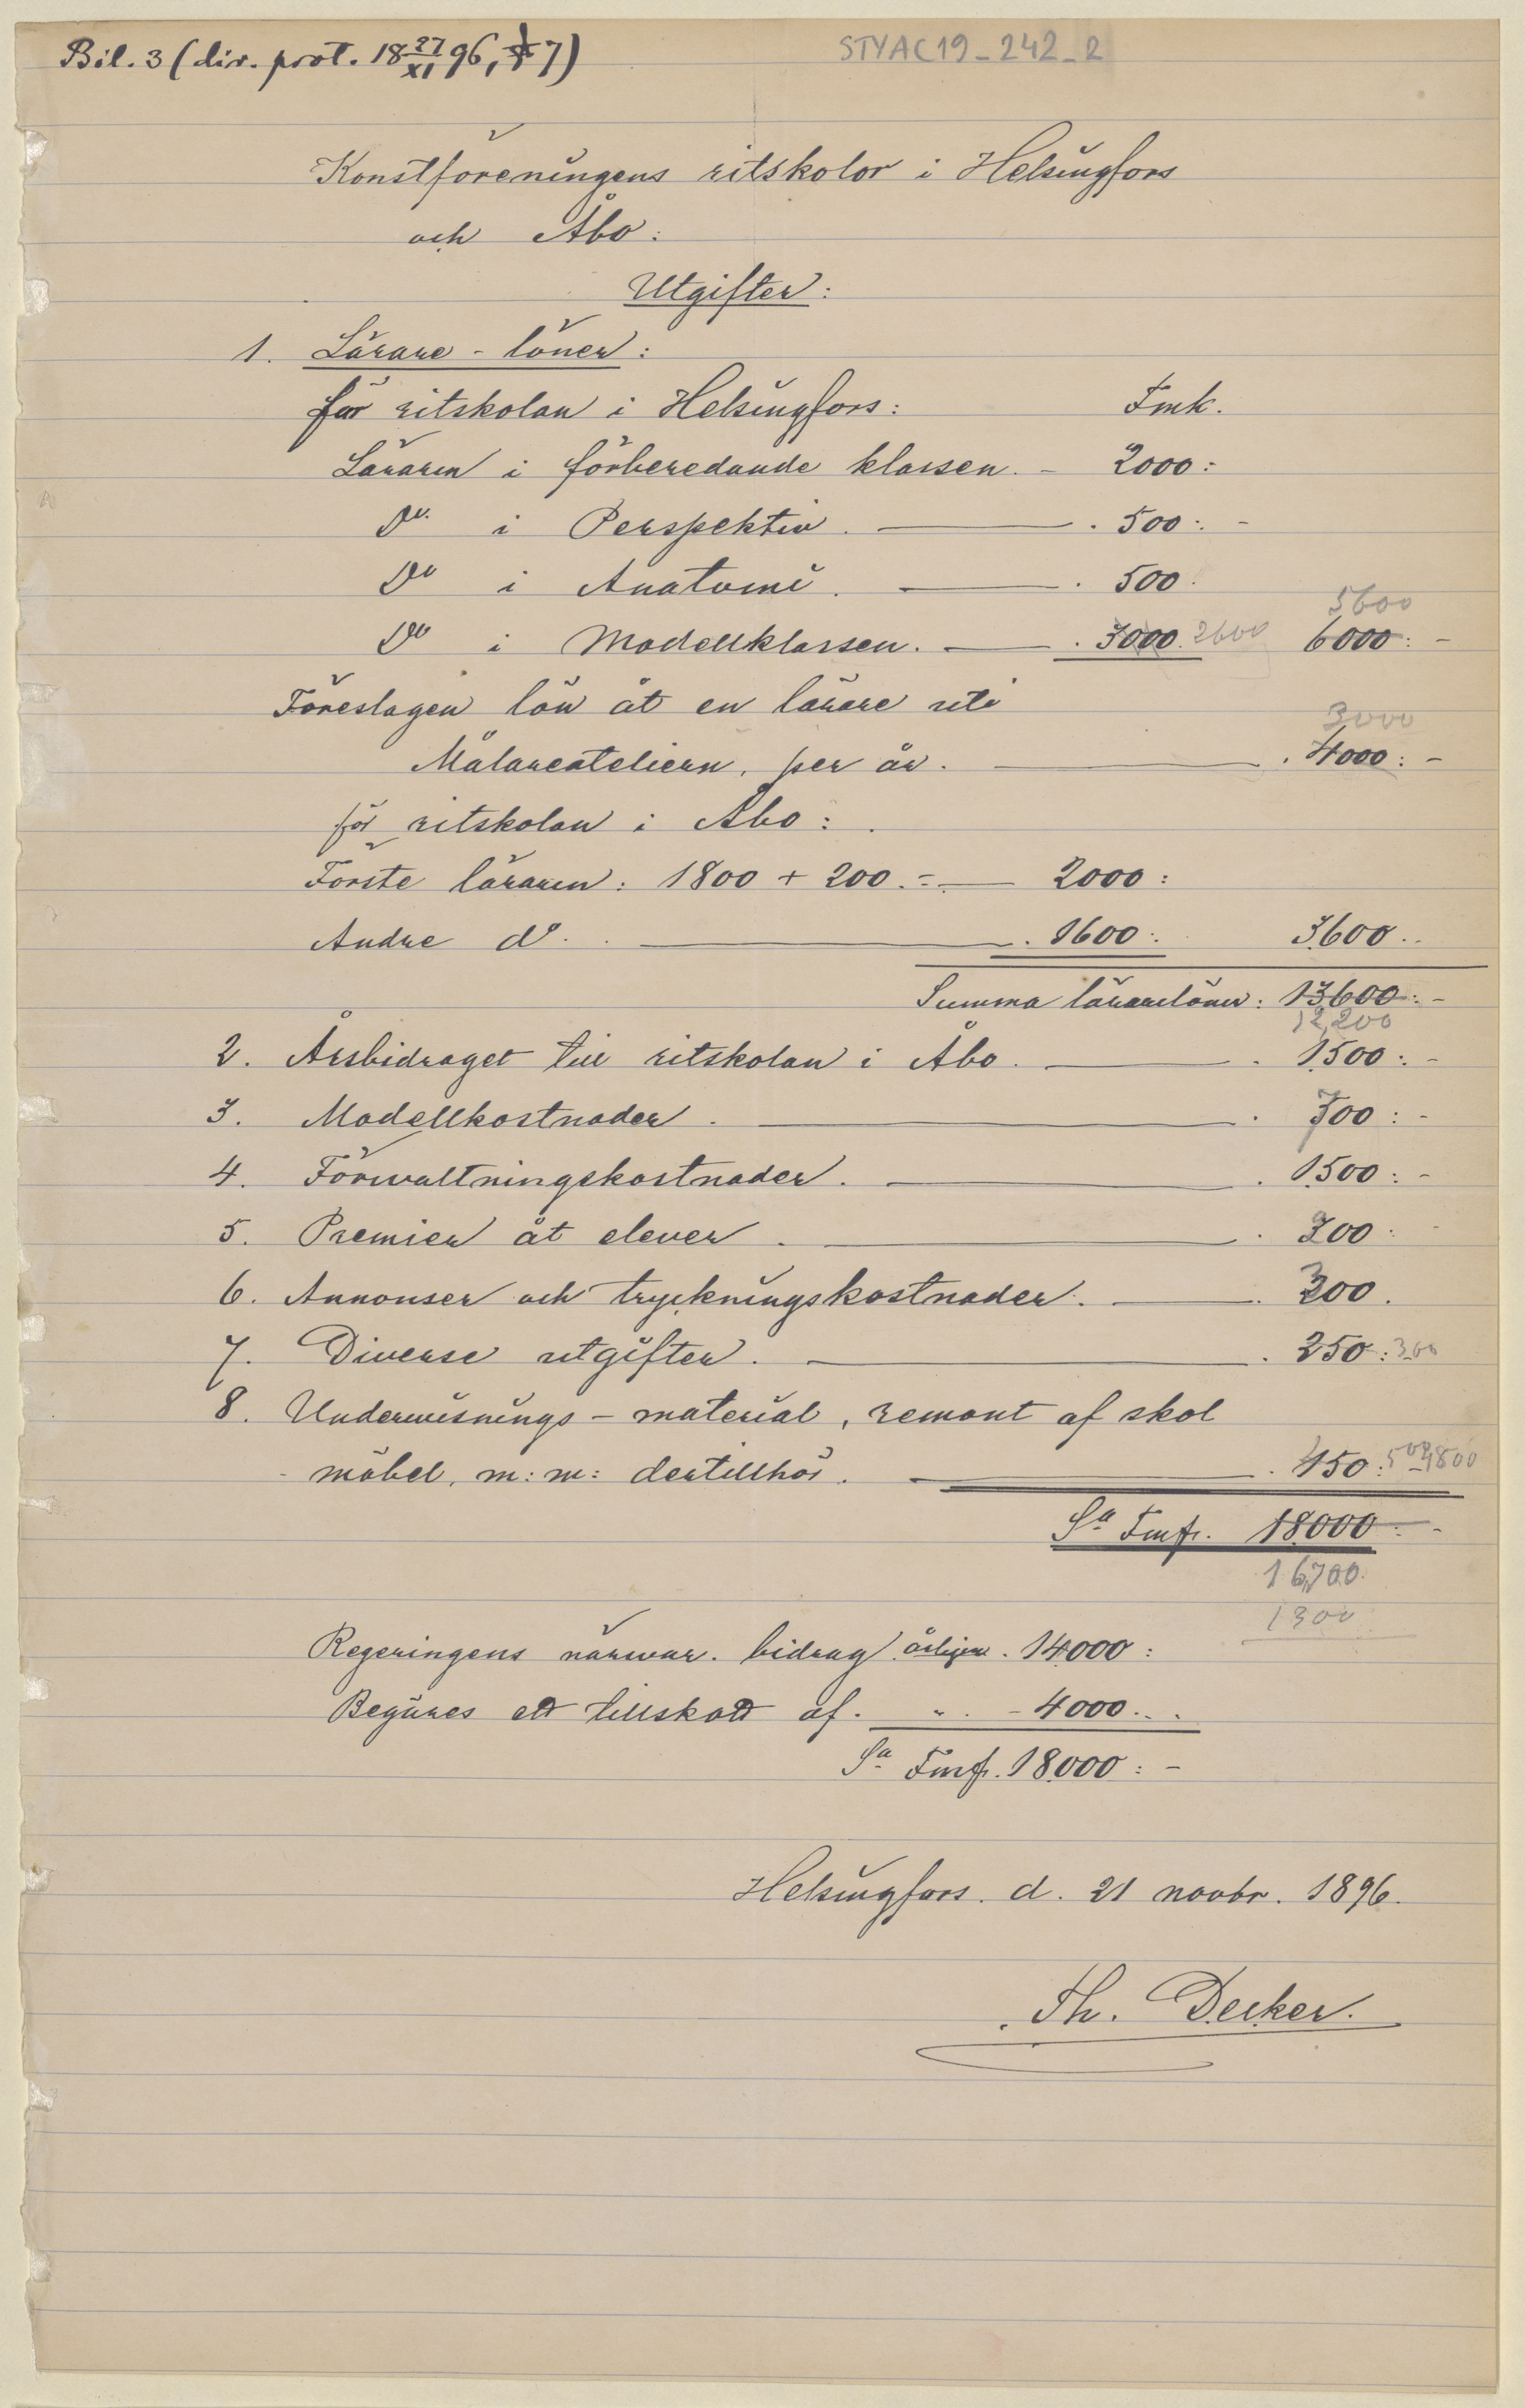 Bil. 3 (dir. prot. 18 27/XI 96, § 7)
STYAC19_242_2
Konstföreningens ritskolor i Helsingfors
och Åbo:
Utgifter:
1. Lärare-löner:
för ritskolan i Helsingfors: Fmk.
Läraren i förberedande klassen. - 2000:
Do i Perspektiv. — . 500: -
Do i Anatomi. — . 500.
5600
Do i Modellklassen. — . 3000. 2600 6000: -
Föreslagen lön åt en lärare uti
3000
Målareateliern, per år. — . 4000: -
för ritskolan i Åbo:
Förste läraren: 1800 + 200. = — 2000:
Andre do. — . 1600: 3600..
Summa lärarelöner: 13600: -
12,200
2. Årsbidraget till ritskolan i Åbo. — . 1500: -
3. Modellkostnader. — . 700: -
4. Förvaltningskostnader. — . 1500: -
5. Premier åt elever. — . 200: -
6. Annonser och tryckningskostnader. — . 300.
7. Diverse utgifter. — . 250: 300
8. Undervisnings-material, remont af skol
möbel, m: m: dertillhör. — . 450: 500 4800
Sa Fmk. 18000: -
16,700.
1300
Regeringens närvar. bidrag årligen. 14000:
Begäres ett tillskott af. " . - 4000..
Sa Fmk. 18000: -
Helsingfors. d. 21 novbr. 1896.
Th. Decker.